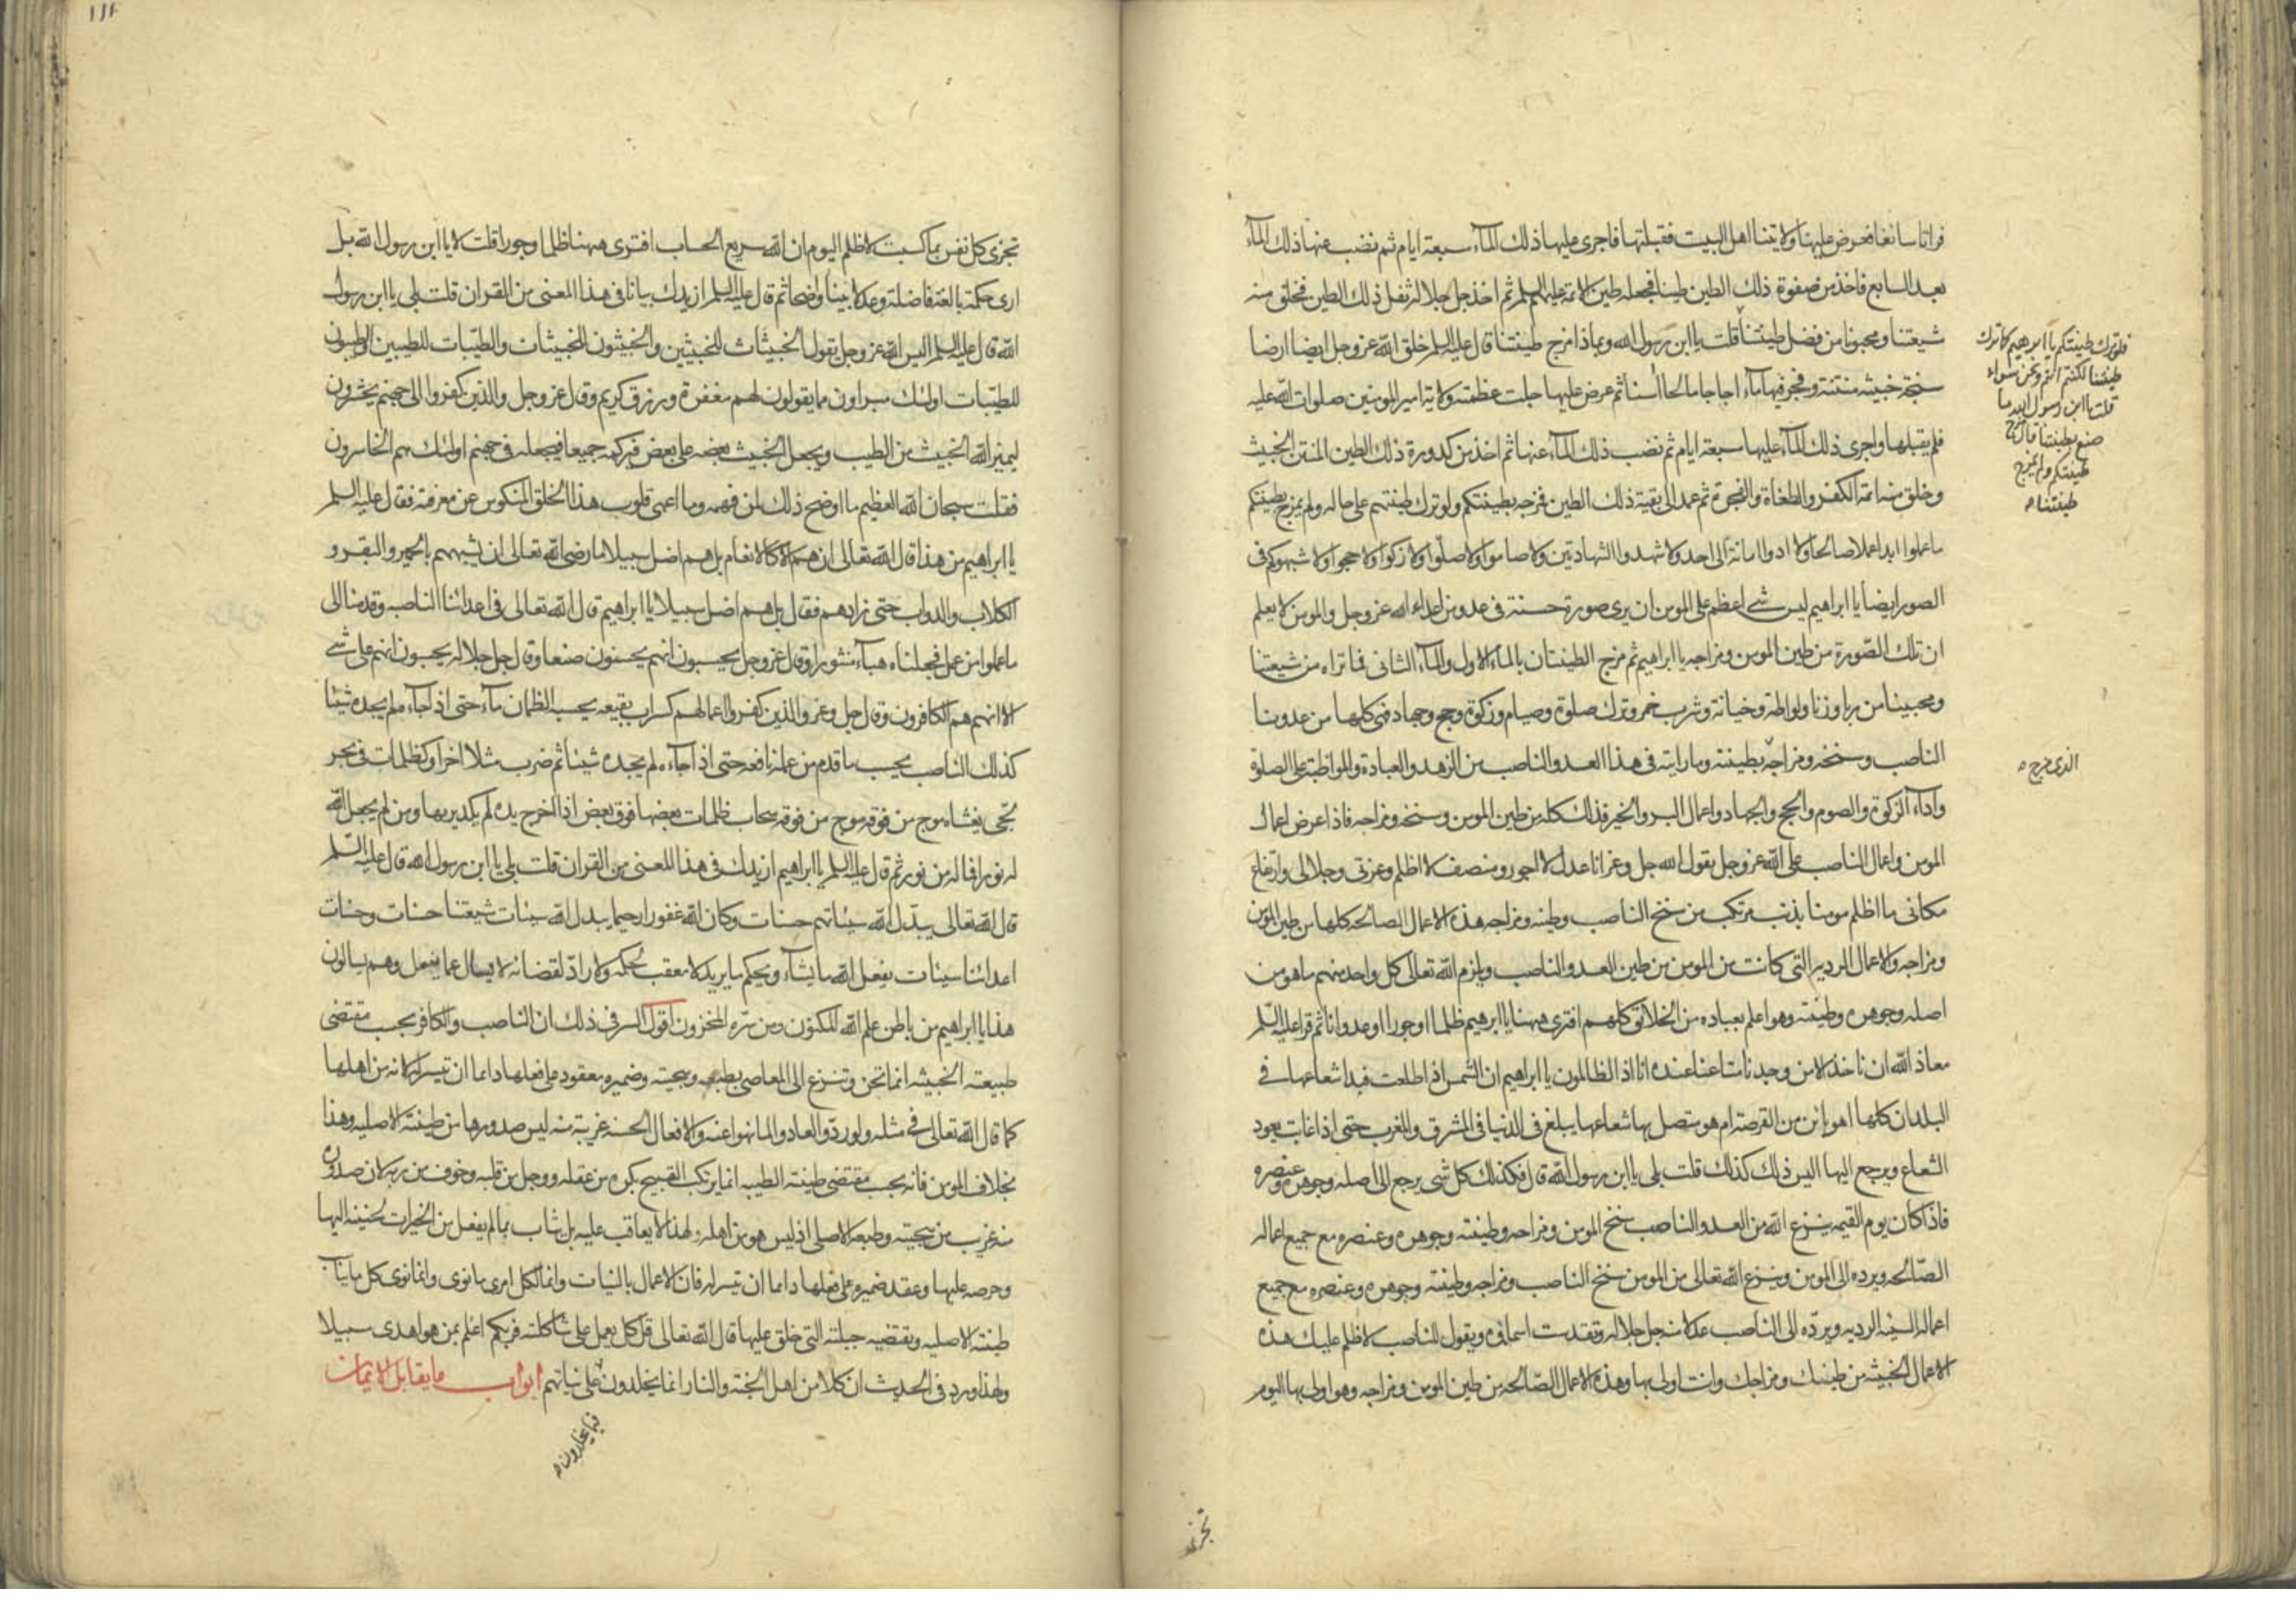 فراتا سائغا فعرض عليها ولايتنا اهل البيت فقبلتها فاجرى عليها ذلك المآء سبعة ايام ثم نضب عنها ذلك المآء
بعد السابع فاخذ من صفوة ذلك الطين طينا فجعله طين الائمة عليهم السلم ثم اخذ جل جلاله ثفل ذلك الطين فخلق منه
شيعتنا ومحبونا من فضل طينتنا قلت يا ابن رسول الله وبماذا مزج طينتنا قال عليه السلم خلق الله عز وجل ايضا ارضا
سبخة خبيثه منتنة وفجر فيها مآء اجاجا مالحا اسنا ثم عرض عليها جلت عظمته ولاية امير المومنين صلوات الله عليه
فلم يقبلها واجرى ذلك المآء عليها سبعة ايام ثم نضب ذلك المآء عنها ثم اخذ من كدورة ذلك الطين المنتن الخبيث
وخلق منه ائمة الكفر والطغاة والفجرة ثم عمد الى بقية ذلك الطين فمزجه بطينتكم ولو ترك طينتهم على حاله ولم يمزج بطينتكم
ما عملوا ابدا عملا صالحا ولا ادوا امانة الى احد ولا شهدوا الشهادتين ولا صاموا ولا صلوا ولا زكوا ولا حجوا ولا شبهوكم فى
الصور ايضا يا ابراهيم ليس شئ اعظم على المومن ان يرى صورة حسنة فى عدو من اعداء الله عز وجل والمومن لا يعلم
ان تلك الصورة من طين المومن ومزاجه يا ابراهيم ثم مزج الطينتان بالماء الاول والمآء الثانى فما تراه من شيعتنا
ومحبينا من ربا وزنا ولواطة وخيانة وشرب خمر وترك صلوة وصيام وزكوة وحج وجهاد فهى كلها من عدونا
الناصب وسنخه ومزاجه بطينته وما رايته فى هذا العدو الناصب من الزهد والعبادة والمواظبة على الصلوة
وادآء الزكوة والصوم والحج والجهاد واعمال البر والخير فذلك كله من طين المومن وسنخه ومزاجه فاذا عرض اعمال
المومن واعمال الناصب على الله عز وجل يقول الله جل وعز انا عدل لا اجور ومنصف لا اظلم وعزتى وجلالى وارتفاع
مكانى ما اظلم مومنا بذنب مرتكب من سنخ الناصب وطينه ومزاجه هذه الاعمال الصالحه كلها من طين المومن
ومزاجه والاعمال الرديه التى كانت من المومن من طين العدو الناصب ويلزم الله تعالى كل واحد منهم ما هو من
اصله وجوهره وطينته وهو اعلم بعباده من الخلائق كلهم افترى ههنا يا ابرهيم ظلما او جورا او عدوانا ثم قرا عليه السلم
معاذ الله ان ناخذ الا من وجدنا متاعنا عنده انا اذا لظالمون يا ابراهيم ان الشمس اذا طلعت فبدا شعاعها فى
البلدان كلها اهو بائن من القرصة ام هو متصل بها شعاعها يبلغ فى الدنيا فى المشرق والمغرب حتى اذا غابت يعود
الشعاع ويرجع اليها اليس ذلك كذلك قلت بلى يا ابن رسول الله قال فكذلك كل شئ يرجع الى اصله وجوهره وعنصره
فاذا كان يوم القيمه ينزع الله من العدو الناصب سنخ المومن ومزاجه وطينته وجوهره وعنصره مع جميع اعماله
الصالحه ويرده الى المومن وينزع الله تعالى من المومن سنخ الناصب ومزاجه وطينته وجوهره وعنصره مع جميع
اعماله السيئه الرديه ويرده الى الناصب عدلا منه جل جلاله وتقدست اسماؤه ويقول للناصب لا ظلم عليك هذه
الاعمال الخبيثه من طينتك ومزاجك وانت اولى بها وهذه الاعمال الصالحه من طين المومن ومزاجه وهو اولى بها اليوم
فلو ترك طينتكم يا ابرهيم كما ترك
طينتنا لكنتم انتم ونحن سواء
قلت يا ابن رسول الله ما
صنع بطينتنا قال مزج
طينتكم ولم يمزج
طينتنا
الذى مزج
تجزى
١١١
تجزى كل نفس بما كسبت لا ظلم اليوم ان الله سريع الحساب افترى ههنا ظلما وجورا قلت لا يا ابن رسول الله بل
ارى حكمة بالغة فاضلة وعدلا بينا واضحا ثم قال عليه السلم ازيدك بيانا فى هذا المعنى من القران قلت بلى يا ابن رسول
الله قال عليه السلم اليس الله عز وجل يقول الخبيثات للخبيثين والخبيثون للخبيثات والطيبات للطيبين والطيبون
للطيبات اولئك مبراون مما يقولون لهم مغفرة ورزق كريم وقال عز وجل والذين كفروا الى جهنم يحشرون
ليميز الله الخبيث من الطيب ويجعل الخبيث بعضه على بعض فيركمه جميعا فيجعله فى جهنم اولئك هم الخاسرون
فقلت سبحان الله العظيم ما اوضح ذلك لمن فهمه وما اعمى قلوب هذا الخلق المنكوس عن معرفته فقال عليه السلم
يا ابراهيم من هذا قال الله تعالى ان هم الا كالانعام بل هم اضل سبيلا ما رضى الله تعالى ان يشبههم بالحمير والبقر و
الكلاب والدواب حتى زادهم فقال بل هم اضل سبيلا يا ابراهيم قال الله تعالى فى اعدائنا الناصبه وقدمنا الى
ما عملوا من عمل فجعلناه هبآء منثورا وقال عز وجل يحسبون انهم يحسنون صنعا وقال جل جلاله يحسبون انهم على شئ
الا انهم هم الكافرون وقال جل وعز والذين كفروا اعمالهم كسراب بقيعه يحسبه الظمان مآء حتى اذا جآءه لم يجده شيئا
كذلك الناصب يحسب ما قدم من عمله نافعه حتى اذا جآءه لم يجده شيئا ثم ضرب مثلا اخر او كظلمات فى بحر
لجى يغشاه موج من فوقه موج من فوقه سحاب ظلمات بعضها فوق بعض اذا اخرج يده لم يكد يريها ومن لم يجعل الله
له نورا فما له من نور ثم قال عليه السلم يا ابراهيم ازيدك فى هذا المعنى من القران قلت بلى يا ابن رسول الله قال عليه السلم
قال الله تعالى يبدل الله سيئاتهم حسنات وكان الله غفورا رحيما يبدل الله سيئات شيعتنا حسنات وحسنات
اعدائنا سيئات يفعل الله ما يشآء ويحكم ما يريد لا معقب لحكمه ولا راد لقضائه لا يسال عما يفعل وهم يسالون
هذا يا ابراهيم من باطن علم الله المكنون ومن سره المخزون اقول السر فى ذلك ان الناصب والكافر بحسب مقتضى
طبيعته الخبيثه انما تحن وتنزع الى المعاصى بطبعه وسجيته وضميره معقود على فعلها دائما ان تيسر له لانه من اهلها
كما قال الله تعالى فى مثله ولو ردوا لعادوا لما نهوا عنه والافعال الحسنه غريبة منه ليس صدورها من طينته الاصليه وهذا
بخلاف المومن فانه بحسب مقتضى طينته الطيبه انما يرتكب القبيح بكره من عقله ووجل من قلبه وخوف من ربه لان صدوره
منه غريب من سجيته وطبعه الاصلى اذ ليس هو من اهله ولهذا لا يعاقب عليه بل يثاب بما لم يفعل من الخيرات لحنينه اليها
وحرصه عليها وعقد ضميره على فعلها دائما ان تيسر له فان الاعمال بالنيات وانما لكل امرى ما نوى وانما نوى كل ما يناسب
طينته الاصليه وتقتضيه جبلته التى خلق عليها قال الله تعالى قل كل يعمل على شاكلته فربكم اعلم بمن هو اهدى سبيلا
ولهذا ورد فى الحديث ان كلا من اهل الجنة والنار انما يخلدون على نياتهم ابواب ما يقابل الايمان